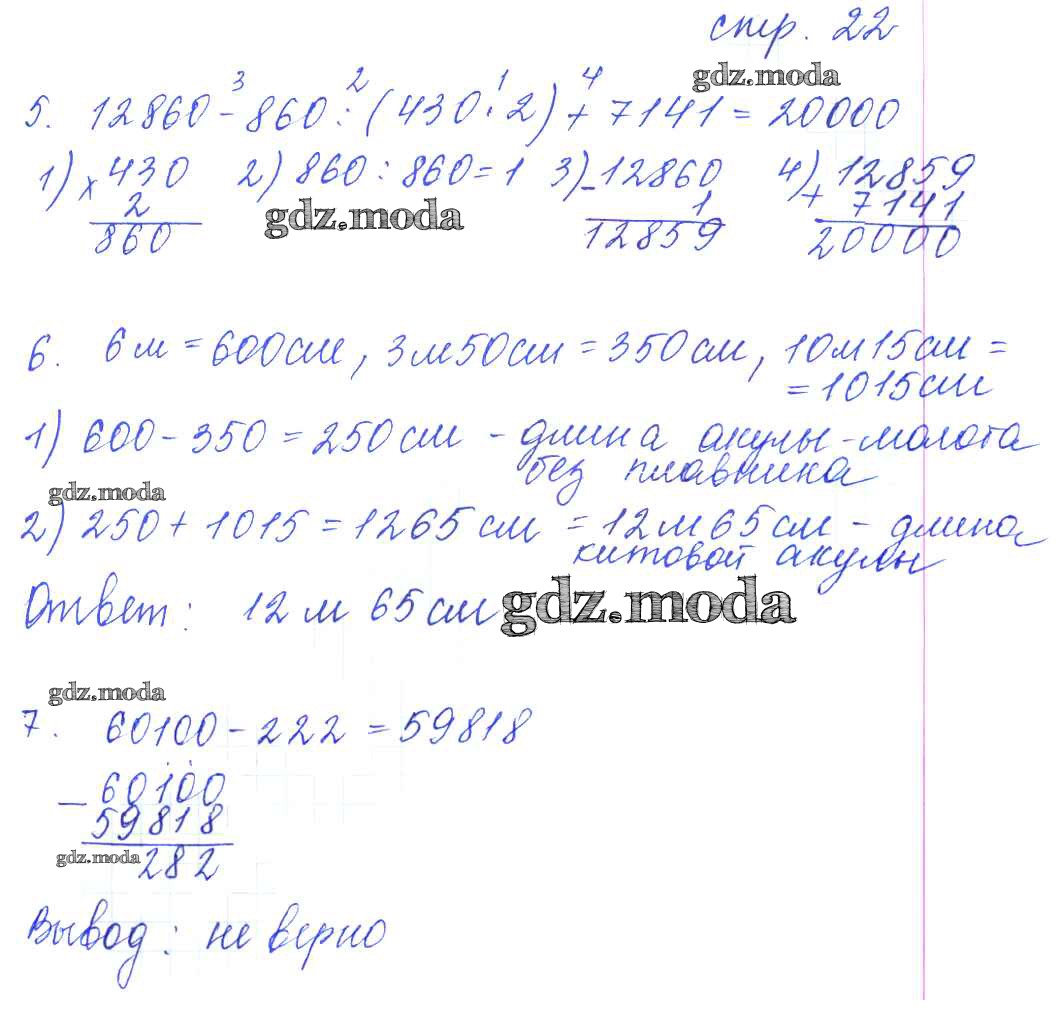 стр. 22
gdz.moda
3 2 1 4
5. 12860 - 860 : (430 · 2) + 7141 = 20000
1) × 430 2) 860 : 860 = 1 3) - 12860 4) + 12859
2 gdz.moda 1 7141
860 12859 20000
6. 6 м = 600 см, 3 м 50 см = 350 см, 10 м 15 см =
= 1015 см
1) 600 - 350 = 250 см - длина акулы-молота
без плавника
gdz.moda
2) 250 + 1015 = 1265 см = 12 м 65 см - длина
китовой акулы
Ответ: 12 м 65 см
gdz.moda
gdz.moda
7. 60100 - 222 = 59818
- 60100
59818
gdz.moda 282
Вывод: не верно